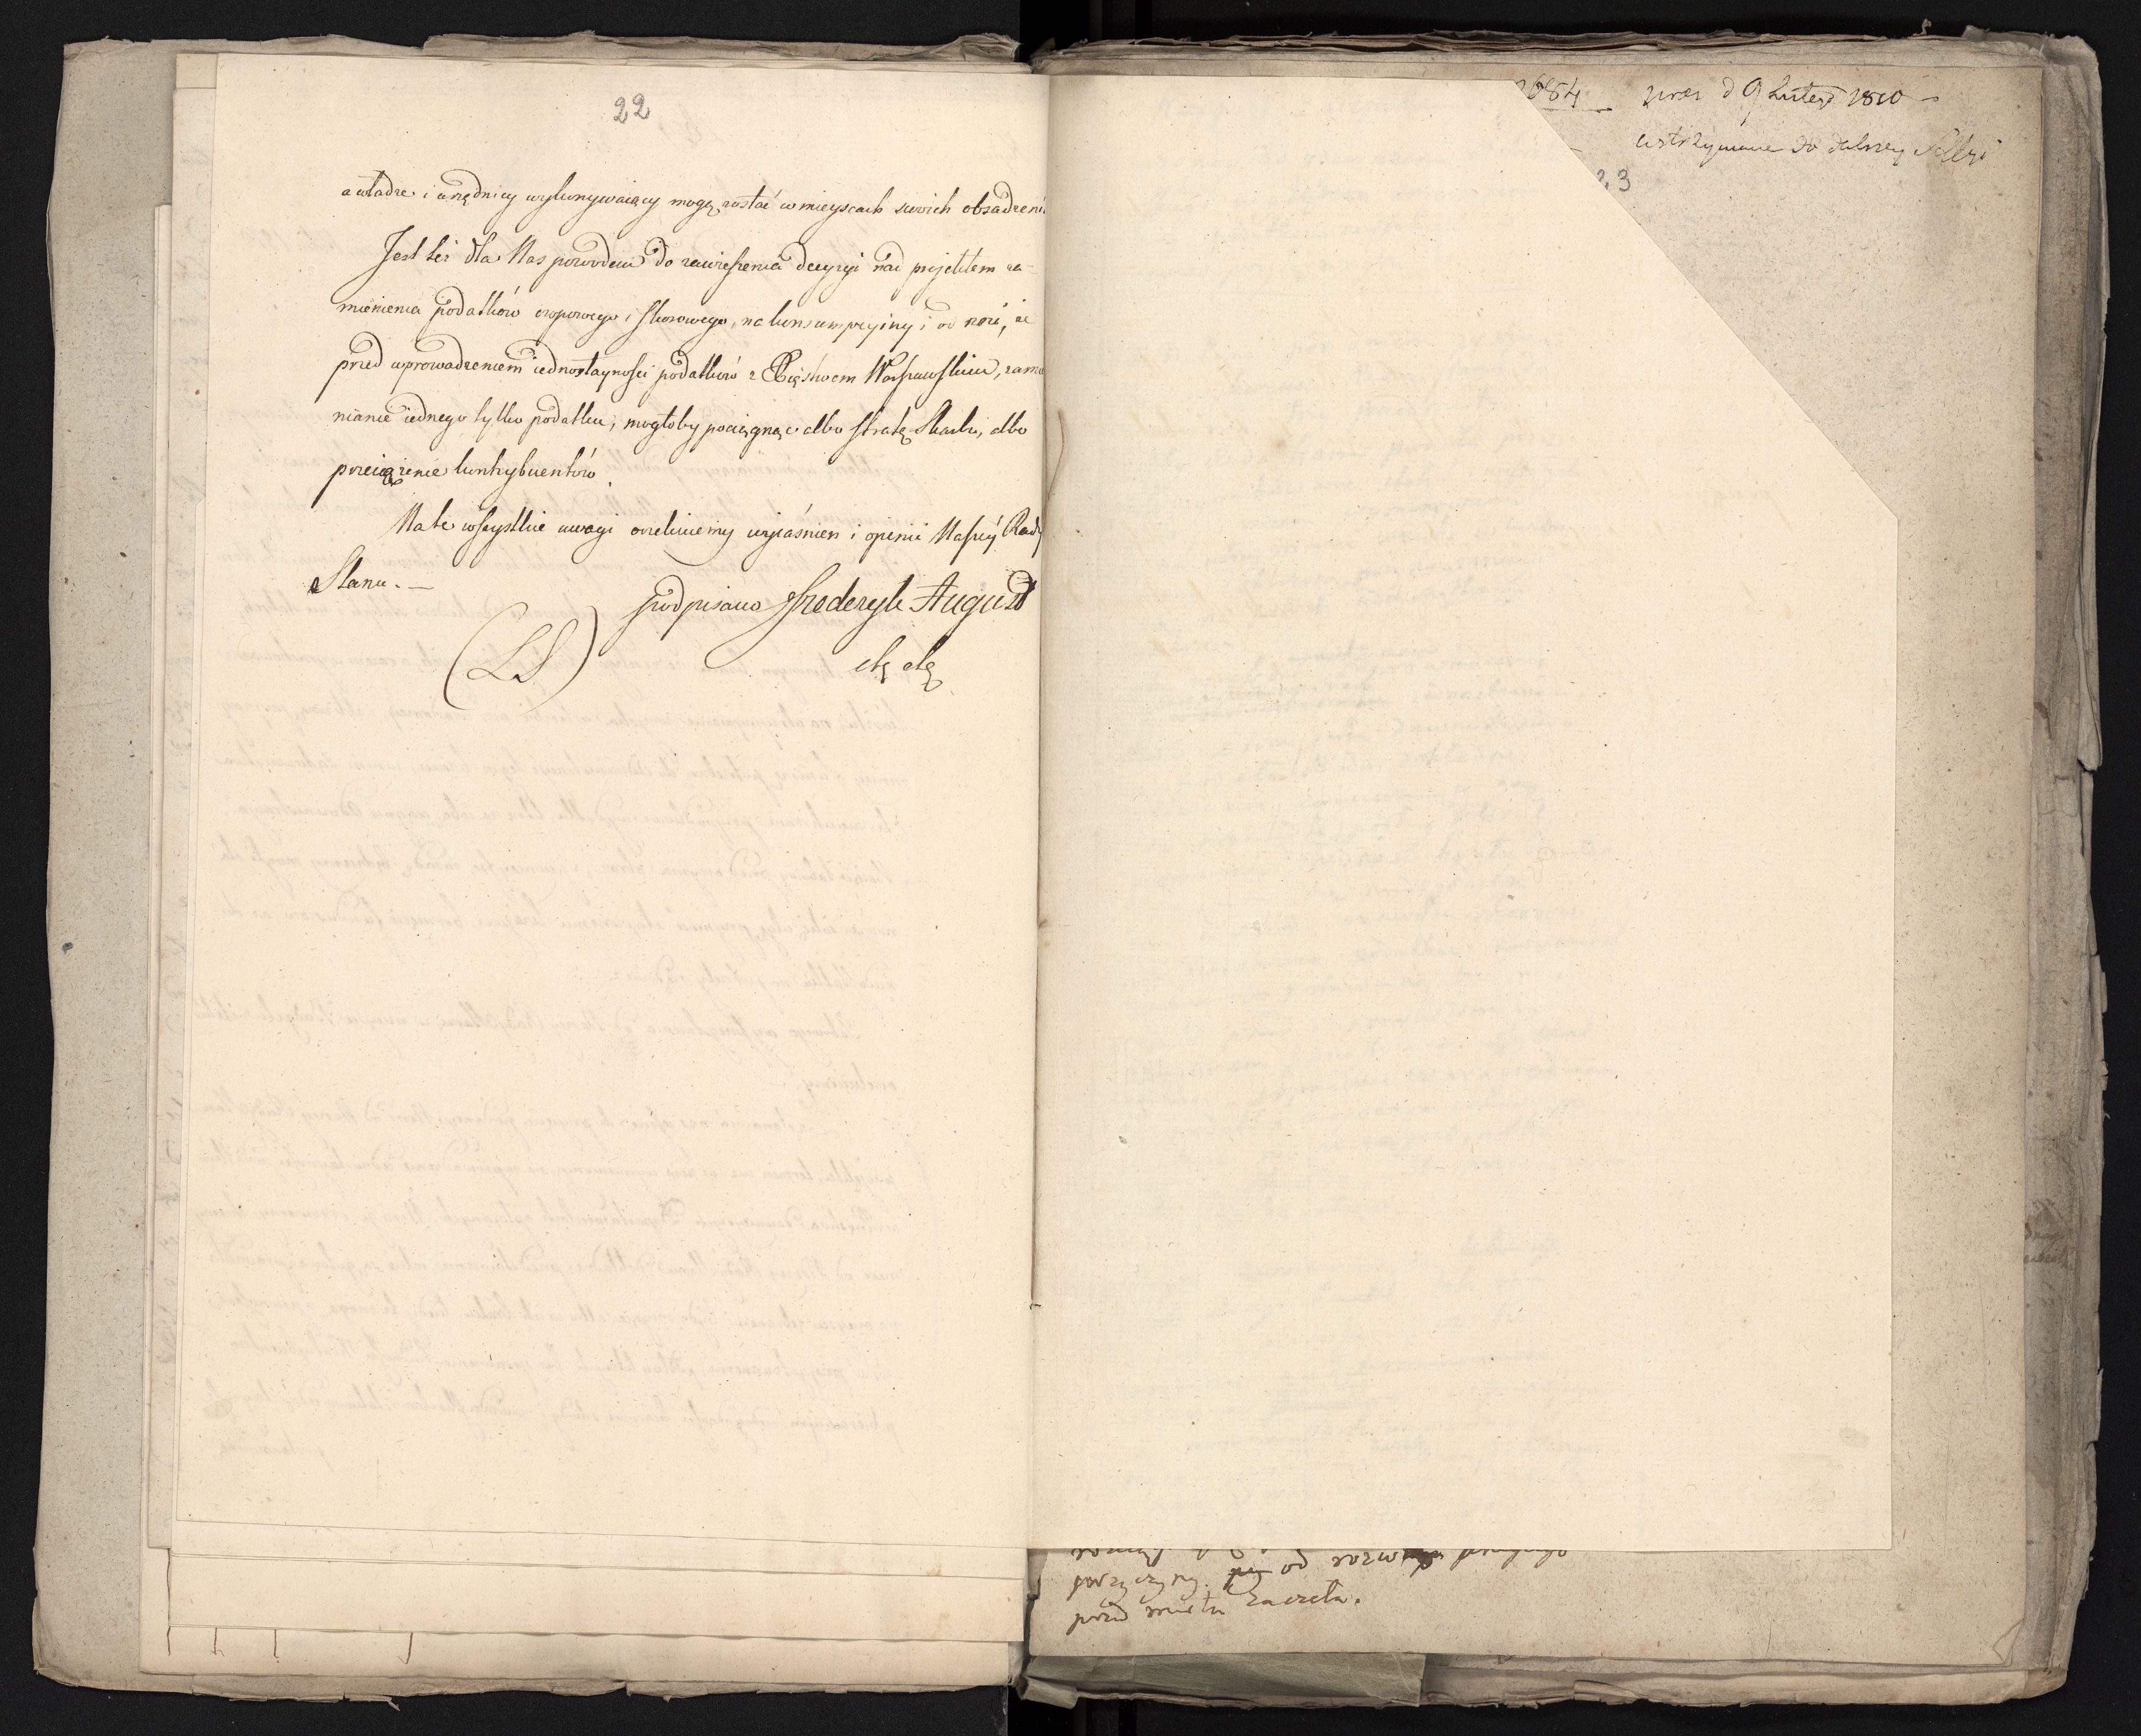 22
a władze i urzędnicy wykonywaiący mogą zostać w mieyscach swoich obsadzeni
Jest też dla Nas powodem do zawieszenia decyzyi nad projektem za-
mienienia podatków czopowego i skorowego, na konsumpcyiny i od rzezi, że
przed wprowadzeniem iednostayności podatków z Xięstwem Warszawskim, zamie
nianie iednego tylko podatku, mogłoby pociągnąć albo stratę Skarbu, albo
przeciążenie kontrybuentów.
Na te wszystkie uwagi oczekuiemy wyiaśnień i opinii Naszey Rady
Stanu. —
podpisano Fryderyk August
(LS)
etc etc
2684 — prez d 9 Lutego 1810 —
wstrzymane do dalszey
23
przyczyny. od
przed Zaczęta.